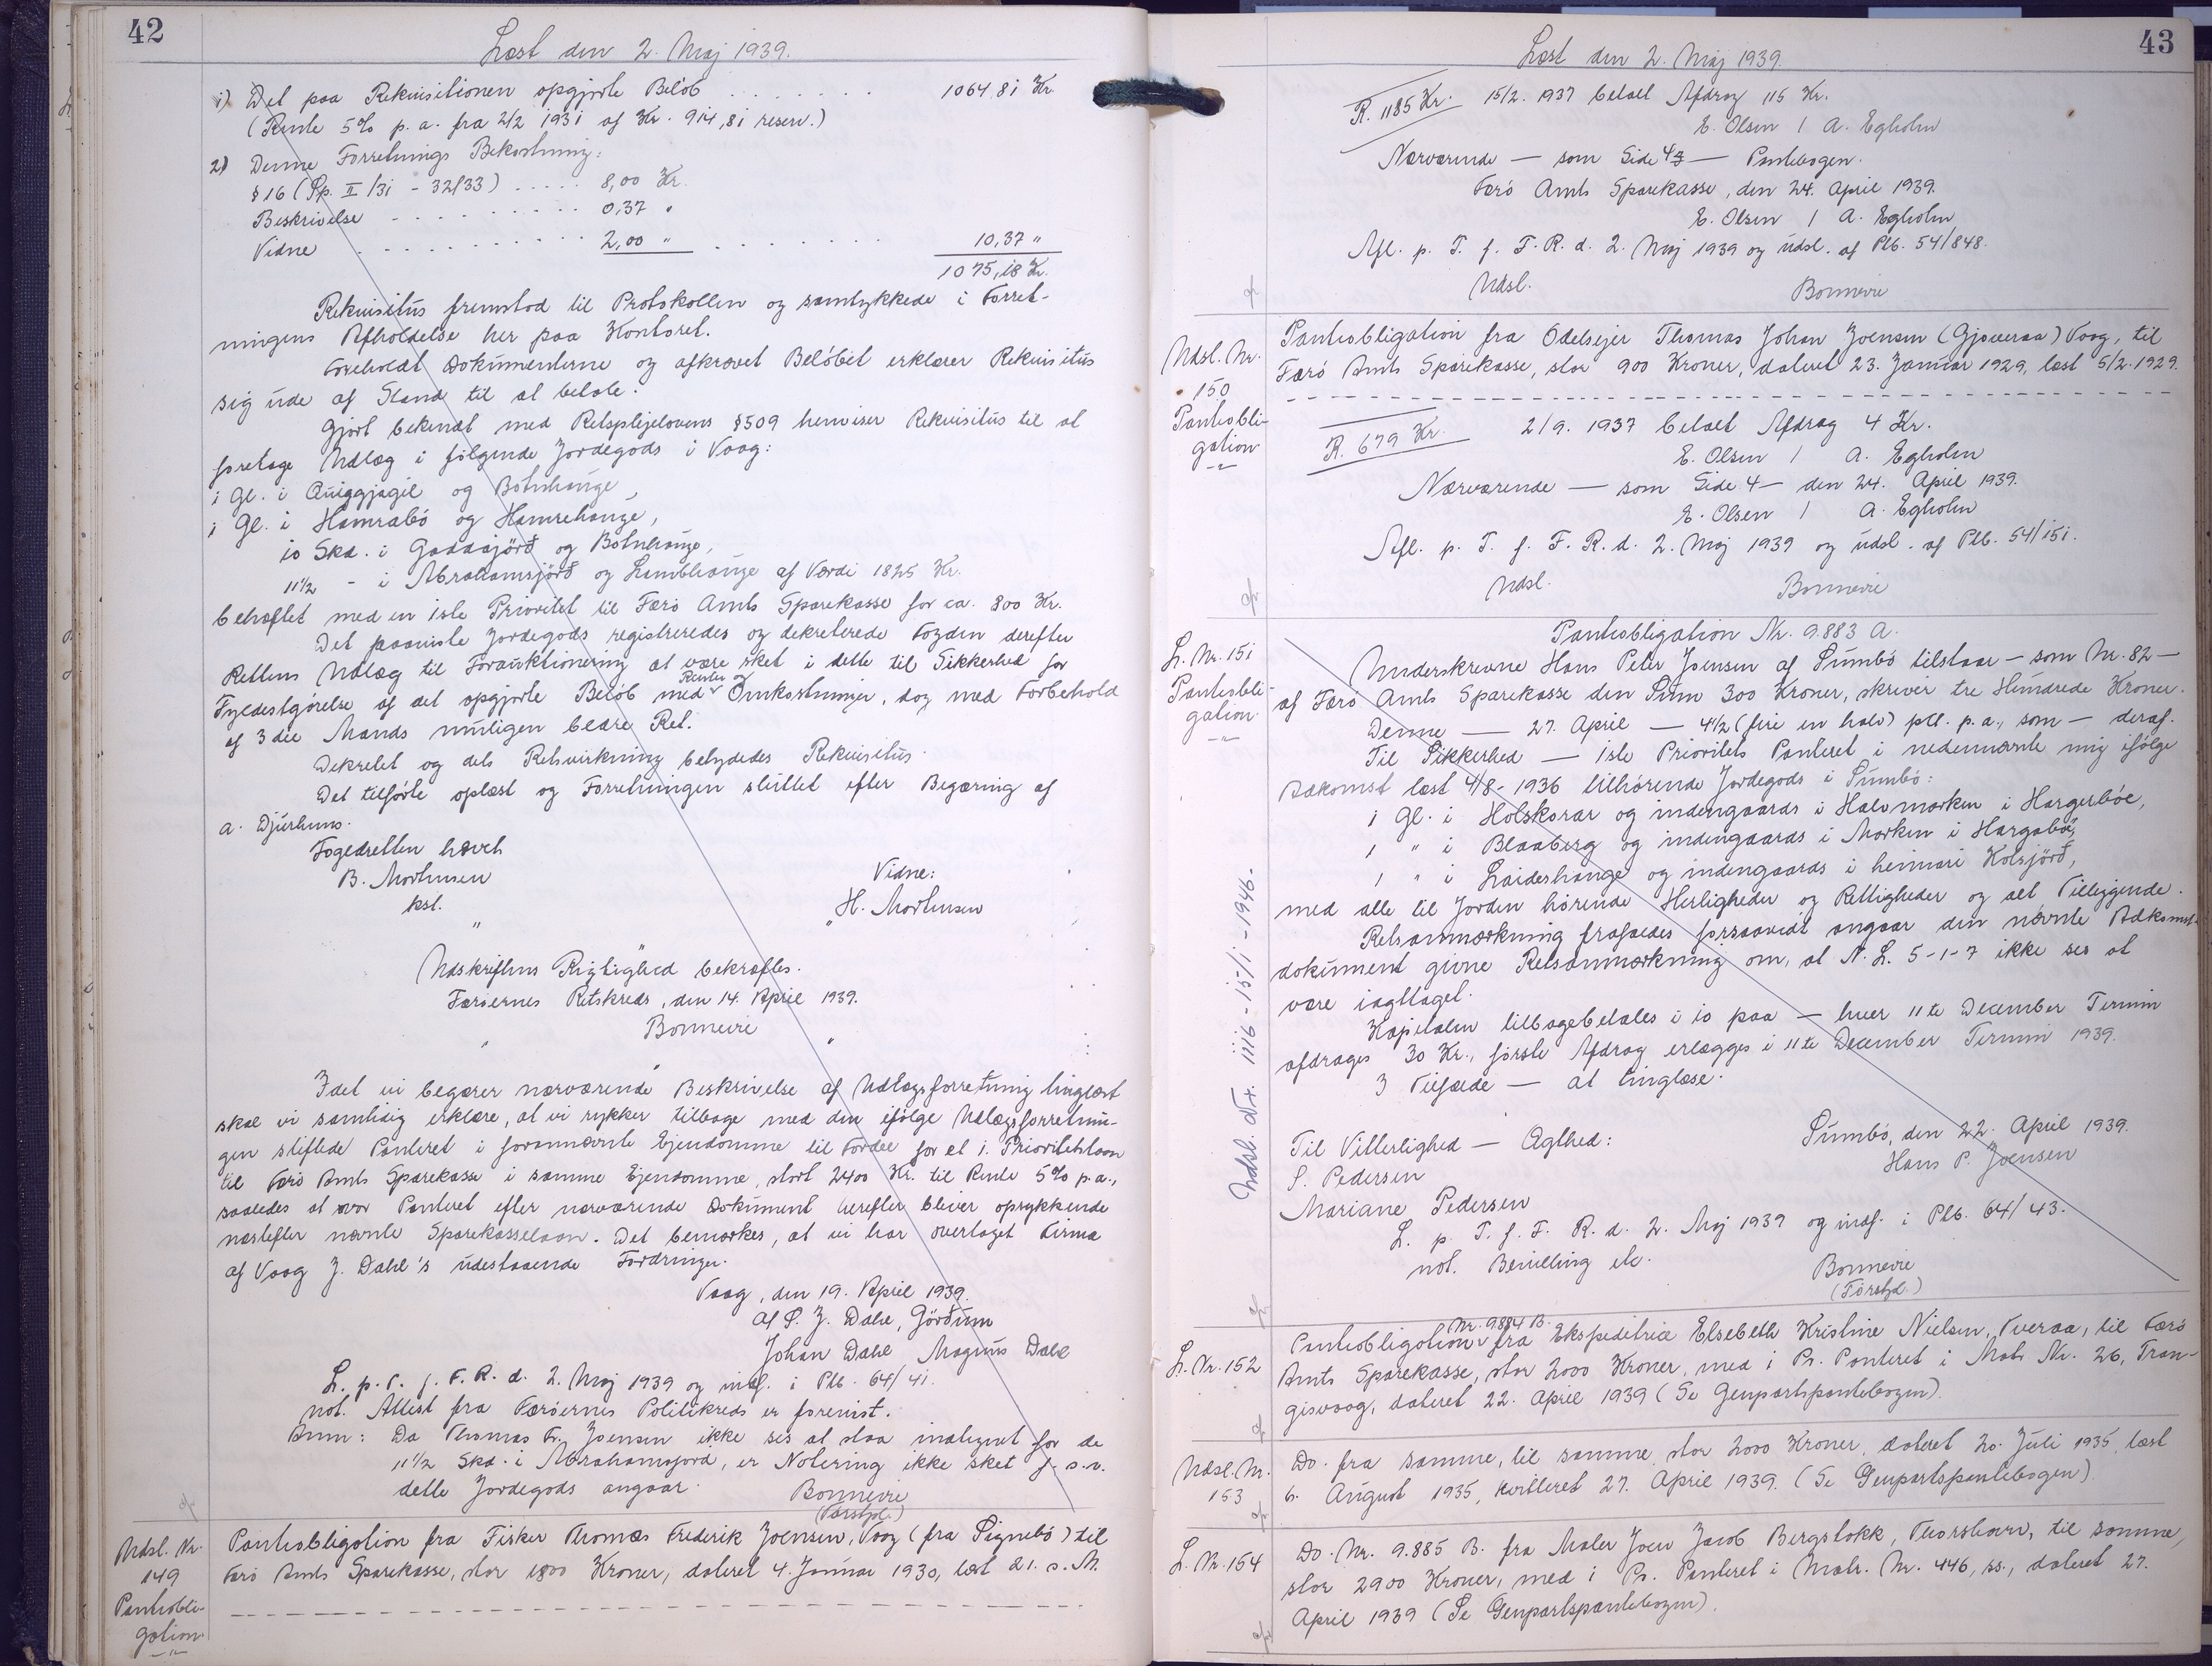 42
Læst den 2. Maj 1939.
1) Det paa Rekvisitionen opgjorte Beløb . . . . . . . 1064,81 Kr.
(Rente 5% p. a. fra 2/2 1931 af Kr. 914,81 reserv.)
2) Denne Forretnings Bekostning:
§ 16 (Sp. II/31 - 32/33) . . . . . 8,00 Kr.
Beskrivelse . . . . . . . . . 0,37 "
Vidne . . . . . . . . . . 2,00 " . . . . . . . 10,37 "
1075,18 Kr.
Rekvisitus fremstod til Protokollen og samtykkede i Forret-
ningens Afholdelse her paa Kontoret.
Foreholdt Dokumenterne og afkrævet Beløbet erklærer Rekvisitus
sig ude af Stand til at betale.
Gjort bekendt med Retsplejelovens § 509 henviser Rekvisitus til at
foretage Udlæg i følgende Jordegods i Vaag:
1 Gl. i Quiggjagil og Botnhauge,
1 Gl. i Hamrabø og Hamrehauge,
10 Skd. i Gaddajørð og Botnhauge,
11½ - i Abrahamsjørð og Lambhauge af Værdi 1825 Kr.
behæftet med en 1ste Prioritet til Færø Amts Sparekasse for ca. 800 Kr.
Det paaviste Jordegods registreredes og dekreterede Fogden derefter
Rettens Udlæg til Forauktionering at være sket i dette til Sikkerhed for
Fyldestgørelse af det opgjorte Beløb med Renter og Omkostninger, dog med Forbehold
af 3die Mands muligen bedre Ret.
Dekretet og dets Retsvirkning betydedes Rekvisitus.
Det tilførte oplæst og Forretningen sluttet efter Begæring af
A. Djurhuus.
Fogedretten hævet
B. Mortensen Vidne:
kst. H. Mortensen
" "
Udskriftens Rigtighed bekræftes.
Færøernes Retskreds, den 14. April 1939.
Bonnevie
" "
Idet vi begærer nærværende Beskrivelse af Udlægsforretning tinglæst
skal vi samtidig erklære, at vi rykker tilbage med den ifølge Udlægsforretnin-
gen stiftede Panteret i forannævnte Ejendomme til Fordel for et 1. Prioritetslaan
til Færø Amts Sparekasse i samme Ejendomme, stort 2400 Kr. til Rente 5% p.a.,
saaledes at vor Panteret efter nærværende Dokument herefter bliver oprykkende
næstefter nævnte Sparekasselaan. Det bemærkes, at vi har overtaget Firma
af Vaag J. Dahl's udestaaende Fordringer.
Vaag, den 19. April 1939.
Af P. J. Dahl, Gørðum
Johan Dahl Magnus Dahl
L. p. T. f. F. R. d. 2. Maj 1939 og indf. i Plb. 64/41.
not. Attest fra Færøernes Politikreds er forevist.
Anm: Da Thomas Fr. Joensen ikke ses at staa indtegnet for de
11½ Skd. i Abrahamsjord, er Notering ikke sket f. s. v.
dette Jordegods angaar. Bonnevie
(Førstfd.)
Udsl. Nr. 149 Pantobli-gation
Pantobligation fra Fisker Thomas Frederik Joensen, Vaag (fra Signebø) til
Færø Amts Sparekasse, stor 1800 Kroner, dateret 4. Januar 1930, læst 21. s. M.
43
Læst den 2. Maj 1939.
R. 1185 Kr. 15/2. 1937 betalt Afdrag 115 Kr.
E. Olsen / A. Egholm
Nærværende — som Side 43 — Pantebogen.
Færø Amts Sparekasse, den 24. April 1939.
E. Olsen / A. Egholm
Afl. p. T. f. F. R. d. 2. Maj 1939 og udsl. af Plb. 54/848.
Udsl. Bonnevie
Udsl. Nr. 150 Pantobli-gation
Pantobligation fra Odelsejer Thomas Johan Joensen (Gjoveraa) Vaag, til
Færø Amts Sparekasse, stor 900 Kroner, dateret 23. Januar 1929, læst 5/2.1929.
R. 679 Kr. 2/9. 1937 betalt Afdrag 4 Kr.
E. Olsen / A. Egholm
Nærværende — som Side 4 — den 24. April 1939.
E. Olsen / A. Egholm
Afl. p. T. f. F. R. d. 2. Maj 1939 og udsl. af Plb. 54/151.
Udsl. Bonnevie
L. Nr. 151 Pantobli-gation
Udsl. Nr. 1116 - 15/1 - 1946.
Pantobligation Nr. 9.883 A.
Underskrevne Hans Peter Joensen af Sumbø tilstaar — som Nr. 82 —
af Færø Amts Sparekasse den Sum 300 Kroner, skriver tre Hundrede Kroner.
Denne — 27. April — 4½ (fire en halv) pCt. p. a., som — deraf.
Til Sikkerhed — 1ste Prioritets Panteret i nedennævnte mig ifølge
Adkomst læst 4/8-1936 tilhørende Jordegods i Sumbø:
1 Gl. i Holskorar og indengaards i Halvmarken i Hargerbøe,
1 " i Blaaberg og indengaards i Marken i Hargabø,
1 " i Laideshauge og indengaards i heimari Kolsjørð,
med alle til Jorden hørende Herligheder og Rettigheder og alt Tilliggende.
Retsanmærkning frafaldes forsaavidt angaar den nævnte Adkomst-
dokument givne Retsanmærkning om, at N. L. 5-1-7 ikke ses at
være iagttaget.
Kapitalen tilbagebetales i 10 paa — hver 11te December Termin
afdrages 30 Kr., første Afdrag erlægges i 11te December Termin 1939.
I Tilfælde — at tinglæse.
Til Vitterlighed — Ægthed: Sumbø, den 22. April 1939.
S. Pedersen Hans P. Joensen
Mariane Pedersen
L. p. T. f. F. R. d. 2. Maj 1939 og indf. i Plb. 64/43.
not. Bevilling etc. Bonnevie
(Førstfd.)
L. Nr. 152
Pantobligation Nr. 9.884 B. fra Ekspeditrice Elsebeth Kristine Nielsen, Tveraa, til Færø
Amts Sparekasse, stor 2000 Kroner, med 1 Pr. Panteret i Matr. Nr. 26, Tran-
gisvaag, dateret 22. April 1939 (Se Genpartspantebogen).
Udsl. Nr. 153
Do. fra samme, til samme, stor 2000 Kroner, dateret 20. Juli 1935, læst
6. August 1935, kvitteret 27. April 1939. (Se Genpartspantebogen).
L. Nr. 154
Do. Nr. 9.885 B. fra Maler Joen Jacob Bergstokk, Thorshavn, til samme,
stor 2900 Kroner, med 1 Pr. Panteret i Matr. Nr. 446, ss., dateret 27.
April 1939 (Se Genpartspantebogen).